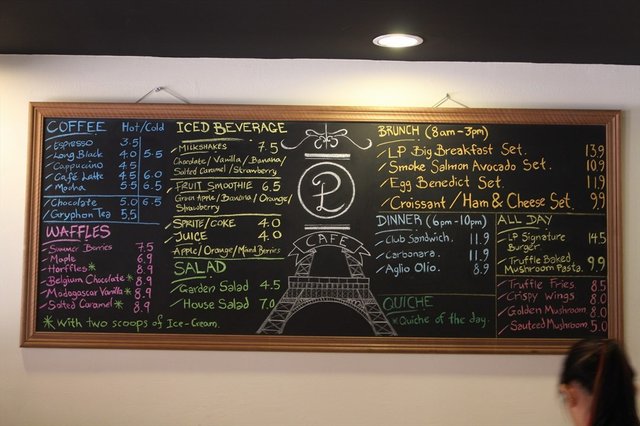 COFFEE Hot/Cold
Espresso 3.5
Long Black 4.0 5.5
Cappucino 4.5
Café Latte 4.5 6.0
Mocha 5.5 6.5
Chocolate 5.5 6.5
Gryphon Tea 5.5
WAFFLES
Summer Berries 7.5
Maple 6.9
Horffles* 8.9
Belgium Chocolate* 8.9
Madagascar Vanilla* 8.9
Salted Caramel* 8.9
*With two scoops of Ice-Cream.
ICED BEVERAGE
MILKSHAKES 7.5
Chocolate/Vanilla/Banana/
Salted Caramel/Strawberry
FRUIT SMOOTHIE 6.5
Green Apple/Banana/Orange/
Strawberry
SPRITE/COKE 4.0
JUICE 4.0
Apple/Orange/Mixed Berries
SALAD
Garden Salad 4.5
House Salad 7.0
LP
CAFE
BRUNCH (8am-3pm)
LP Big Breakfast Set. 13.9
Smoke Salmon Avocado Set. 10.9
Egg Benedict Set. 11.9
Croissant/Ham & Cheese Set. 9.9
DINNER (6pm-10pm)
Club Sandwich. 11.9
Carbonara. 11.9
Aglio Olio. 8.9
QUICHE
*Quiche of the day.
ALL DAY
LP Signature 14.5
Burger.
Truffle Baked
Mushroom Pasta. 9.9
Truffle Fries 8.5
Crispy Wings 8.0
Golden Mushroom 8.0
Sauteed Mushroom 5.0